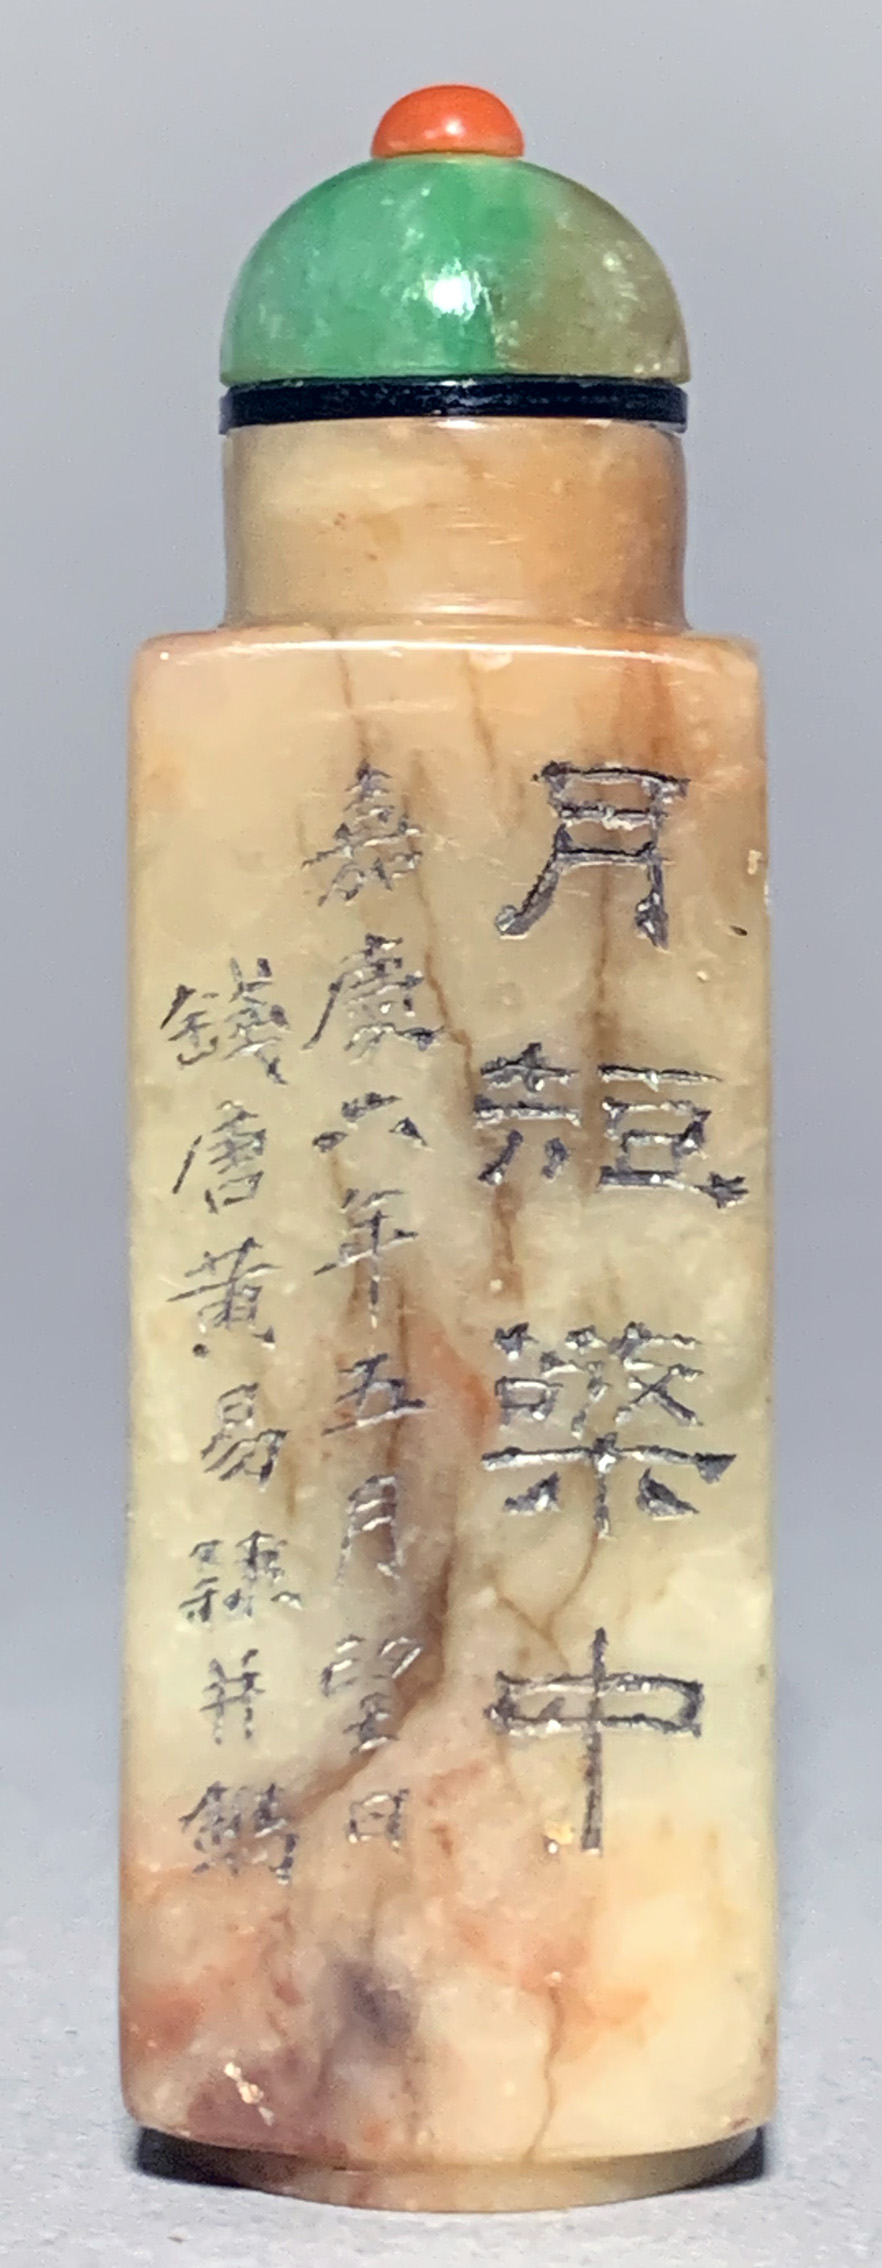 月檠中
嘉慶六年五月望日
錢唐黃易隸并鐫